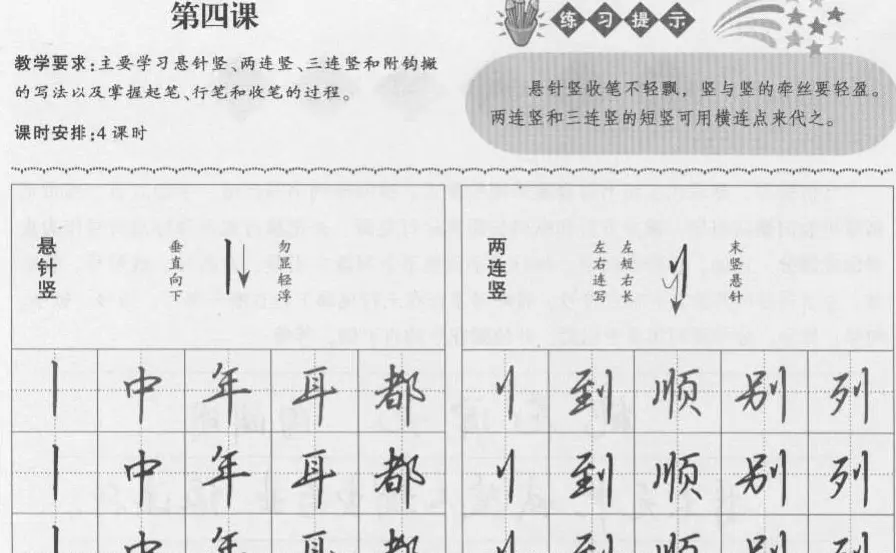 第四课
教学要求:主要学习悬针竖、两连竖、三连竖和附钩撇
的写法以及掌握起笔、行笔和收笔的过程。
课时安排:4课时
练习提示
悬针竖收笔不轻飘，竖与竖的牵丝要轻盈。
两连竖和三连竖的短竖可用横连点来代之。
悬针竖
垂直向下
勿显轻浮
两连竖
左右连写
左短右长
末竖悬针
丨 中 年 耳 都
刂 到 顺 别 列
丨 中 年 耳 都
刂 到 顺 别 列
丨 中 年 耳 都
刂 到 顺 别 列